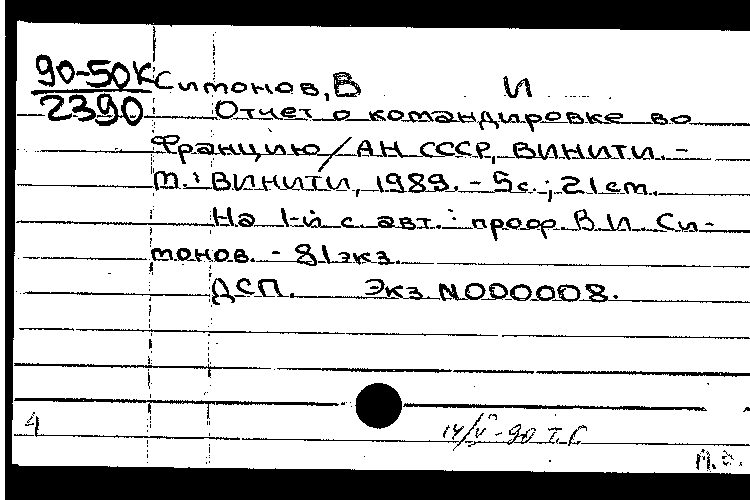 90-50К Симонов, В И
2390 Отчет о командировке во
Францию / АН СССР, ВИНИТИ. -
М.: ВИНИТИ, 1989. - 5 с.; 21 см.
На 1-й с. авт.: проф. В. И. Си-
монов. - 81 экз.
ДСП. Экз. N000008.
4
14/V-90 Т.Г.